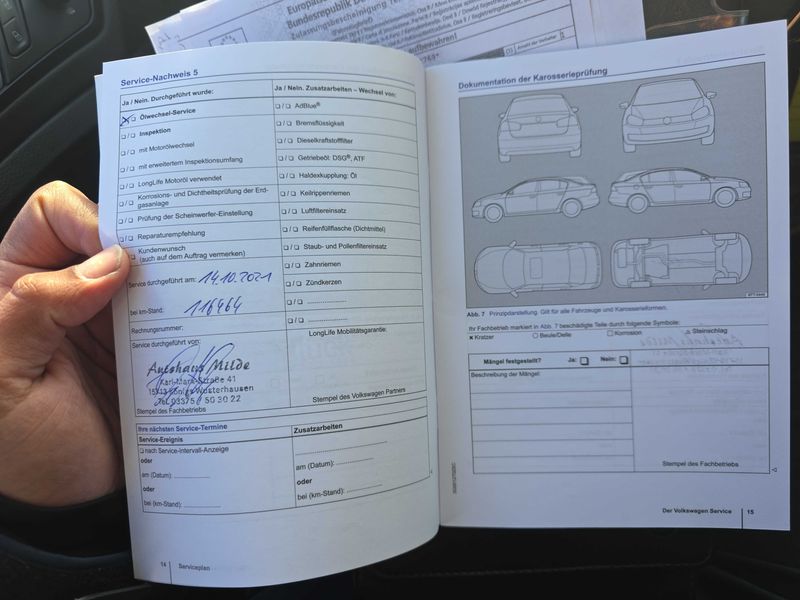 Bundesrepublik
Service-Nachweis 5
Ja / Nein. Durchgeführt wurde:
Ölwechsel-Service
Inspektion
mit Motorölwechsel
mit erweitertem Inspektionsumfang
LongLife Motoröl verwendet
Korrosions- und Dichtheitsprüfung der Erd-
gasanlage
Prüfung der Scheinwerfer-Einstellung
Reparaturempfehlung
Kundenwunsch
(auch auf dem Auftrag vermerken)
Service durchgeführt am: 14.10.2021
bei km-Stand: 116464
Rechnungsnummer:
Service durchgeführt von:
Autohaus Milde
Karl-Marx-Straße 41
Königs Wusterhausen
Tel. 03375 / 50 30 22
Stempel des Fachbetriebs
Ja / Nein. Zusatzarbeiten – Wechsel von:
AdBlue®
Bremsflüssigkeit
Dieselkraftstofffilter
Getriebeöl: DSG®, ATF
Haldexkupplung: Öl
Keilrippenriemen
Luftfiltereinsatz
Reifenfüllflasche (Dichtmittel)
Staub- und Pollenfiltereinsatz
Zahnriemen
Zündkerzen
LongLife Mobilitätsgarantie:
Stempel des Volkswagen Partners
Ihre nächsten Service-Termine
Service-Ereignis
nach Service-Intervall-Anzeige
oder
am (Datum):
oder
bei (km-Stand):
Zusatzarbeiten
am (Datum):
oder
bei (km-Stand):
14 Serviceplan
Dokumentation der Karosserieprüfung
Abb. 7 Prinzipdarstellung. Gilt für alle Fahrzeuge und Karosserieformen.
Ihr Fachbetrieb markiert in Abb. 7 beschädigte Teile durch folgende Symbole:
× Kratzer ○ Beule/Delle □ Korrosion △ Steinschlag
Mängel festgestellt? Ja: Nein:
Beschreibung der Mängel:
Stempel des Fachbetriebs
Der Volkswagen Service 15